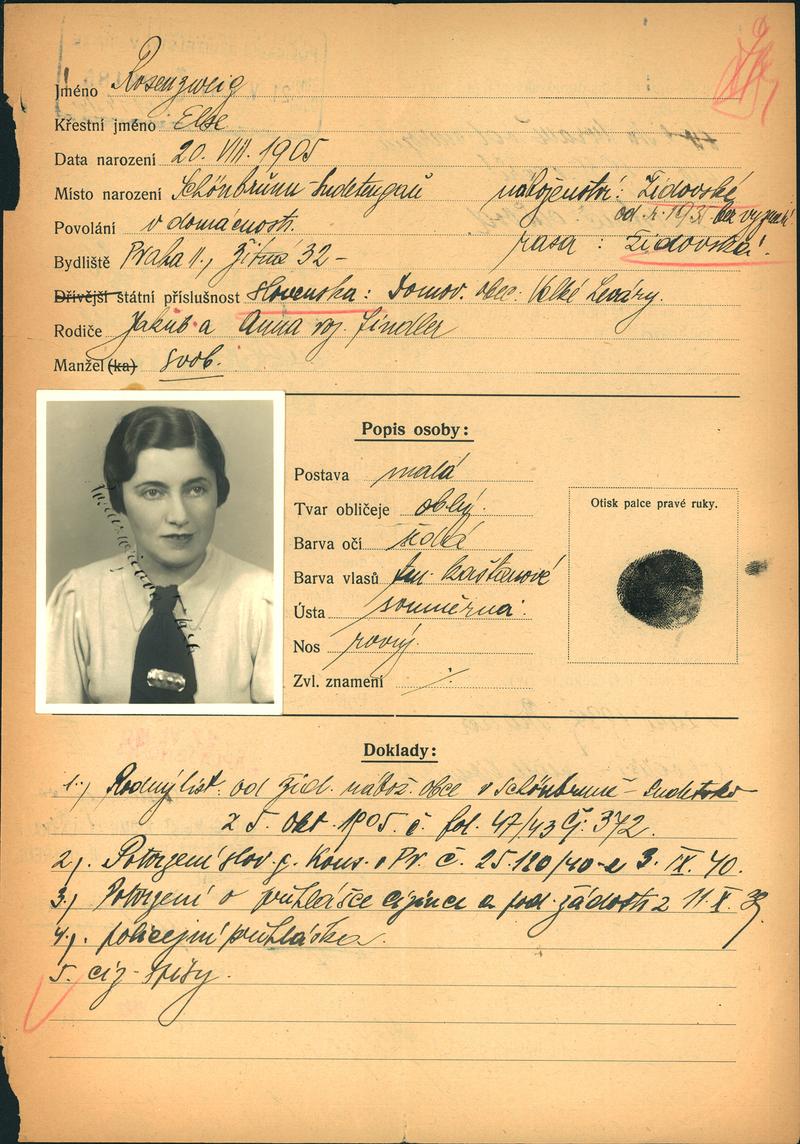 Jméno Rosenzweig
Křestní jméno Else
Data narození 20. VIII. 1905
Místo narození Schönbrunn-Sudetengau náboženství: Židovské
od r. 1931 bez vyznání
Povolání v domácnosti.
rasa : židovská!
Bydliště Praha II., Žitná 32 -
Dřívější státní příslušnost Slovenská: Domov. obec: Velké Leváry.
Rodiče Jakub a Anna roz. Findler
Manžel (ka) svob.
Popis osoby:
Postava malá
Tvar obličeje oblý.
Barva očí šedá
Barva vlasů tm. kaštanové
Ústa souměrná.
Nos rovný.
Zvl. znamení ./.
Otisk palce pravé ruky.
Doklady:
1.) Rodný list: od žid. nábož. obce v Schönbrunně - Sudetsko
z 5. okt. 1905. č. fol. 47/43 Čj. 372.
2.) Potvrzení slov. g. Kons. v Pr. č. 25.120/40-e 3. IX. 40.
3.) Potvrzení o přihlášce cizince a pod. žádosti z 11. X. 39
4.) policejní přihláška.
5. ciz. spisy.